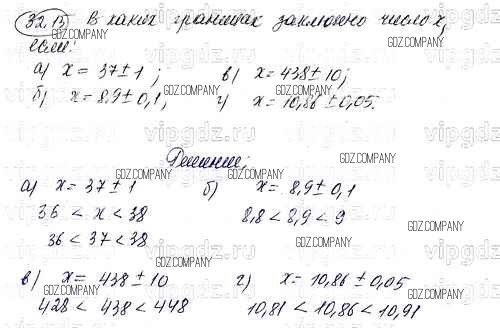 32.13 В каких границах заключено число x,
если:
а) x = 37 ± 1 ; в) x = 438 ± 10;
б) x = 8,9 ± 0,1 ; г) x = 10,86 ± 0,05.
Решение;
а) x = 37 ± 1 б) x = 8,9 ± 0,1
36 < x < 38 8,8 < 8,9 < 9
36 < 37 < 38
в) x = 438 ± 10 г) x = 10,86 ± 0,05
428 < 438 < 448 10,81 < 10,86 < 10,91
GDZ.COMPANY
vipgdz.ru